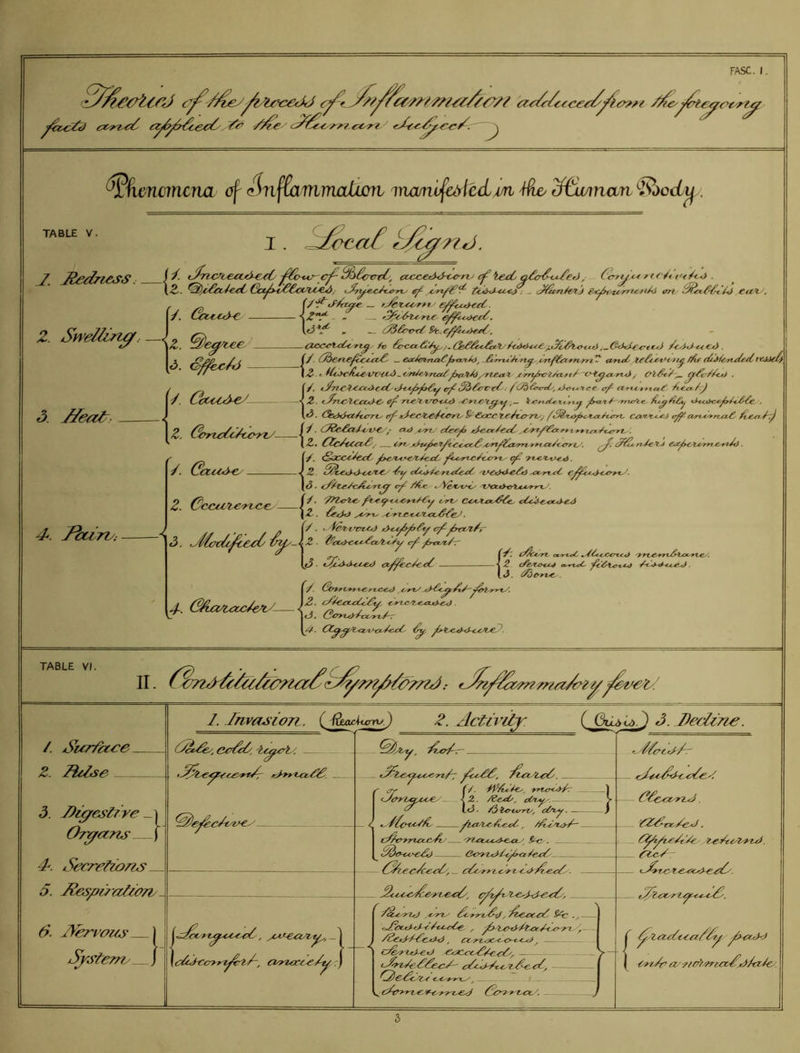 FASC. I.
Theories of the process of Inflammation adduced from the foregoing
facts and applied to the Human Subject.
Phenomena of Inflammation manifested in the Human Body.
TABLE V.
I. Local Signs.
1. Redness.
1. Increased flow of Blood, accession of red globules,
2. Dilated Capillaries, Injection of
2. Swelling.
1. Cause
1st Stage Serum effused.
2nd " Fibrine effused.
3rd " Blood &c. effused.
2. Degree
according to locality, Cellular tissue
3. Effects
1. Beneficial external parts, limiting inflammn and relieving the distended vessels
2. Mischievous internal parts, near important organs,
3. Heat.
1. Cause
1. Increased supply of Blood. (Blood, source of animal heat)
2. Increase of nervous energy, tender parts more highly susceptible.
3. Cessation of Secretion & Excretion, (Respiration carries off animal heat)
2. Condition
1. Relative; as in deep seated inflammation.
2. Actual, in superficial inflammation. J. Hunter's experiments.
4. Pain.
1. Cause
1. Excited perverted function of nerves.
2. Pressure by distended vessels and effusion.
3. Stretching of the Nervi vasorum.
2. Occurrence
1. More frequently in Curable diseases
2. Less in incurable.
3. Modified by
1. Nervous supply of part
2. Vascularity of part
3. Tissues affected
1. Skin and Mucous membrane.
2. Serous and fibrous tissues.
3. Bone.
4. Character
1. Commences in slight form.
2. Steadily increases.
3. Constant
4. Aggravated by pressure.
TABLE VI.
II. Constitutional Symptoms: Inflammatory fever.
1. Invasion. (Reaction) 2. Activity (Crisis) 3. Decline.
1. Surface Pale, cold, rigor. Dry, hot Moist
2. Pulse Frequent small. Frequent full, hard. Subsides.
3. Digestive Organs Defective
Tongue
1. White, moist
2. Red, dry
3. Brown, dry
Cleans.
Mouth parched, thirst Abated.
Stomach nausea &c. Appetite returns.
Bowels Constipated Act
4. Secretions Checked, diminished. Increased.
5. Respiration Quickened, oppressed, Tranquil.
6. Nervous System
Languid, weary, discomfort, anxiety.
Pains in limbs, head &c.,
Lassitude, prostration,
Restless, anxious,
Senses excited,
Intellect disturbed,
Delirium,
Sometimes Coma.
gradually pass into a normal state
3